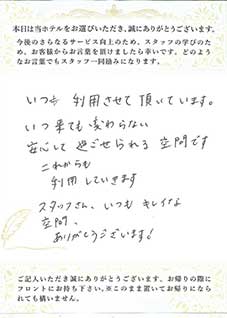 本日は当ホテルをお選びいただき、誠にありがとうございます。
今後のさらなるサービス向上のため、スタッフの学びのため、お客様からお言葉を頂けましたら幸いです。どのようなお言葉でもスタッフ一同励みになります。
いつも 利用させて頂いています。
いつ来ても変わらない
安心して過ごせられる空間です
これからも
利用していきます
スタッフさん、いつもキレイな
空間、
ありがとうございます!
ご記入いただき誠にありがとうございます。お帰りの際に
フロントにお持ち下さい。※このまま置いてお帰りになら
れても構いません。